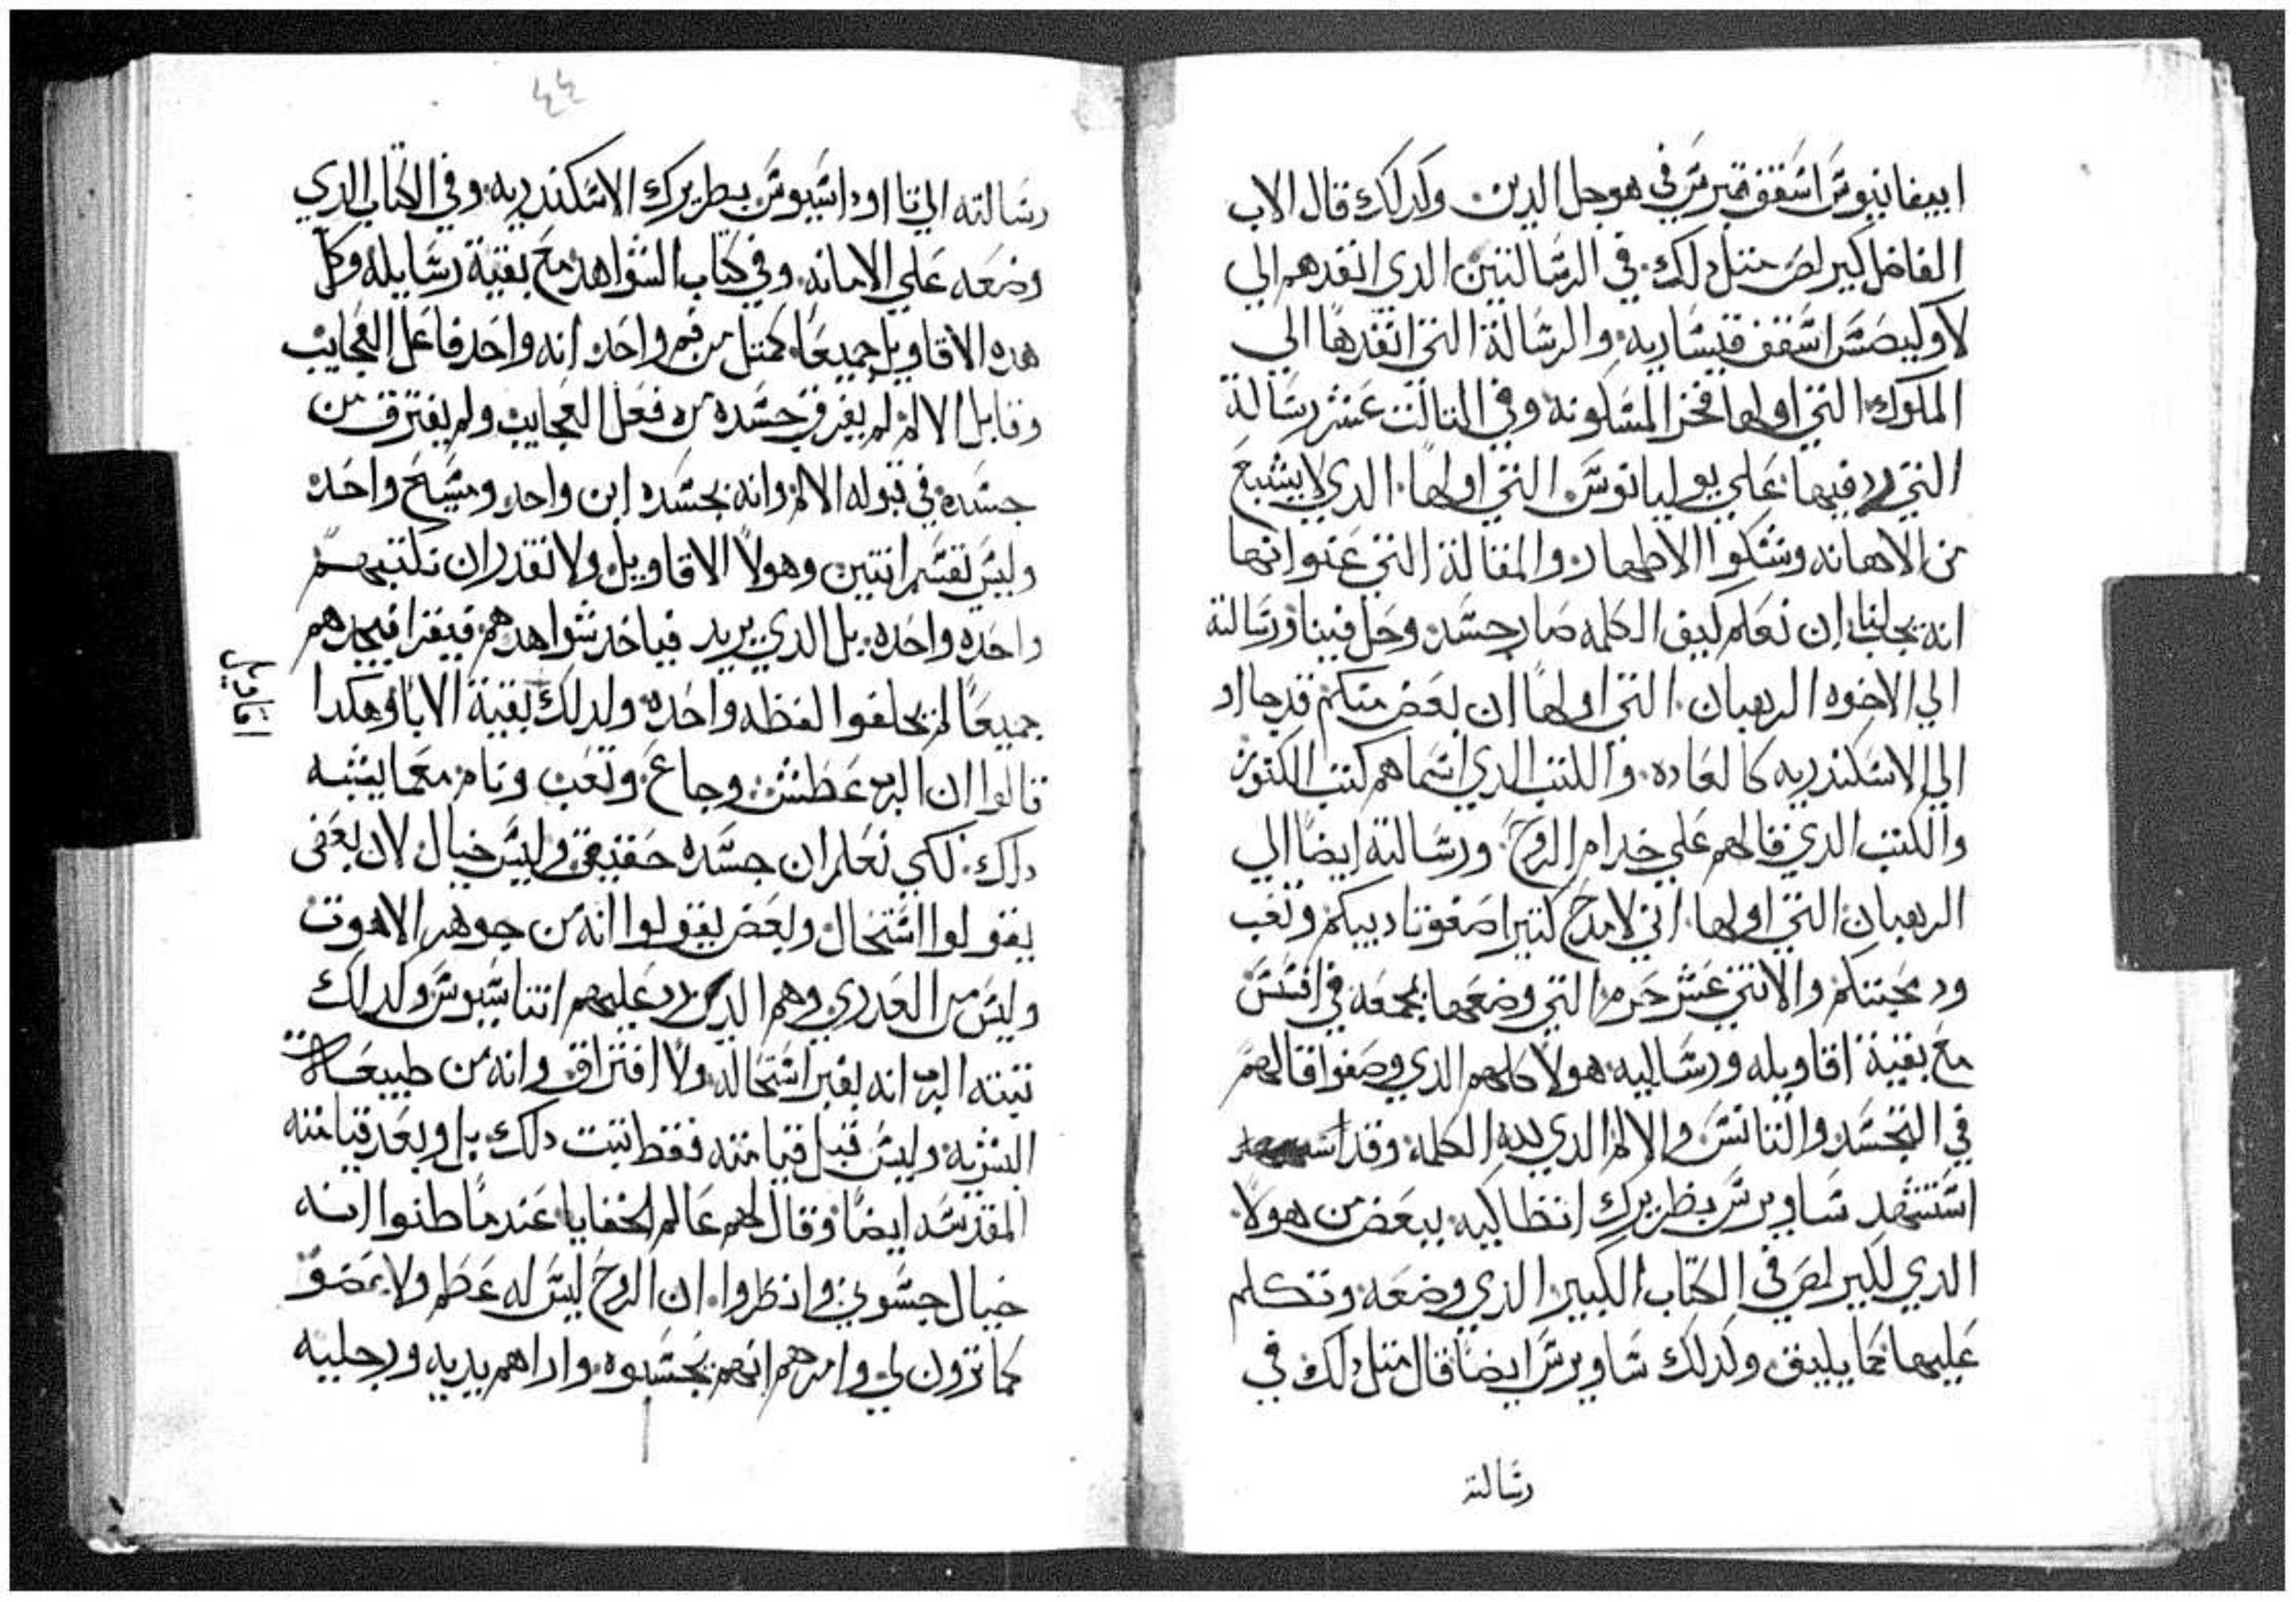 ابيفانيوس اسقف قبرس في هوجل الدين وكدلك قال الاب
الفاضل كيرلص متل دلك في الرسالتين الدي انقدهم الي
لاوكيصس اسقف قيساريه والرسالة التي انقدها الي
الملوك التي اولها فخر المسكونه وفي التالت عشر رسالة
التي رد فيها علي يوليانوس التي اولها الدي لا يشبع
من الاهانه وشكوا الاطهار والمقالة التي عنوانها
انه يجب لنا ان نعلم كيف الكلمه صار جسد وحل فينا ورسالته
الي الاخوه الرهبان التي اولها ان بعض منكم قد جا اد
الي الاسكندريه كالعاده والكتب الدي اسماهم كتب الكنوز
والكتب الدي قالهم علي خدام الروح ورسالته ايضا الي
الرهبان التي اولها اني لامدح كتيرا صفوتا ديبكم وتعب
ود محبتكم والاتني عشر حرم التي وضعها بمجمعه في افسس
مع بقية اقاويله ورسايله هولا كلهم الدي وصفوا قالهم
في التجسد والتانس والالام الدي لله الكلمة وقد
استشهد ساويرس بطريرك انطاكيه ببعض من هولا
الدي لكيرلص في الكتاب الكبير الدي وضعه وتكلم
عليها بما يليق وكدلك ساويرس ايضا قال متل دلك في
رسالته
٤٤
رسالته الي تااوداسيوس بطريرك الاسكندريه وفي الكتاب الدي
وضعه علي الامانه وفي كتاب الشواهد مع بقية رسايله وكل
هده الاقاويل جميعا كمتل من فم واحد انه واحد فاعل العجايب
وقابل الالام لم يفرق جسده من فعل العجايب ولم يفترق من
جسده في قبوله الالام وانه بجسده ابن واحد ومسيح واحد
وليس نقسم اتنين وهولا الاقاويل ولا نقدر ان نكتبهم
واحده واحده بل الدي يريد فياخد شواهدهم فيقرا فيجدهم
جميعا لم يخلفوا لفظه واحده ولدلك بقية الابا وهكدا
اقاويل
قالوا ان الرب عطش وجاع وتعب ونام معما يشبه
دلك لكي نعلم ان جسده حقيقي وليس خيال لان بعض
يقولوا استحال وبعض يقولوا انه من جوهر الاهوت
وليس من العدري وهم الدين رد عليهم اتناسيوس وكدلك
تبته الرب انه بغير استحاله ولا افتراق وانه من طبيعتنا
البشريه وليس قبل قيامته فقط تبت دلك بل وبعد قيامته
المقدسه ايضا وقال لهم عالم الخفايا عندما ظنوا انه
خيال جسوني وانظروا ان الروح ليس له عظم ولا عضو
كما ترون لي وامرهم انهم يجسوه واراهم يديه ورجليه